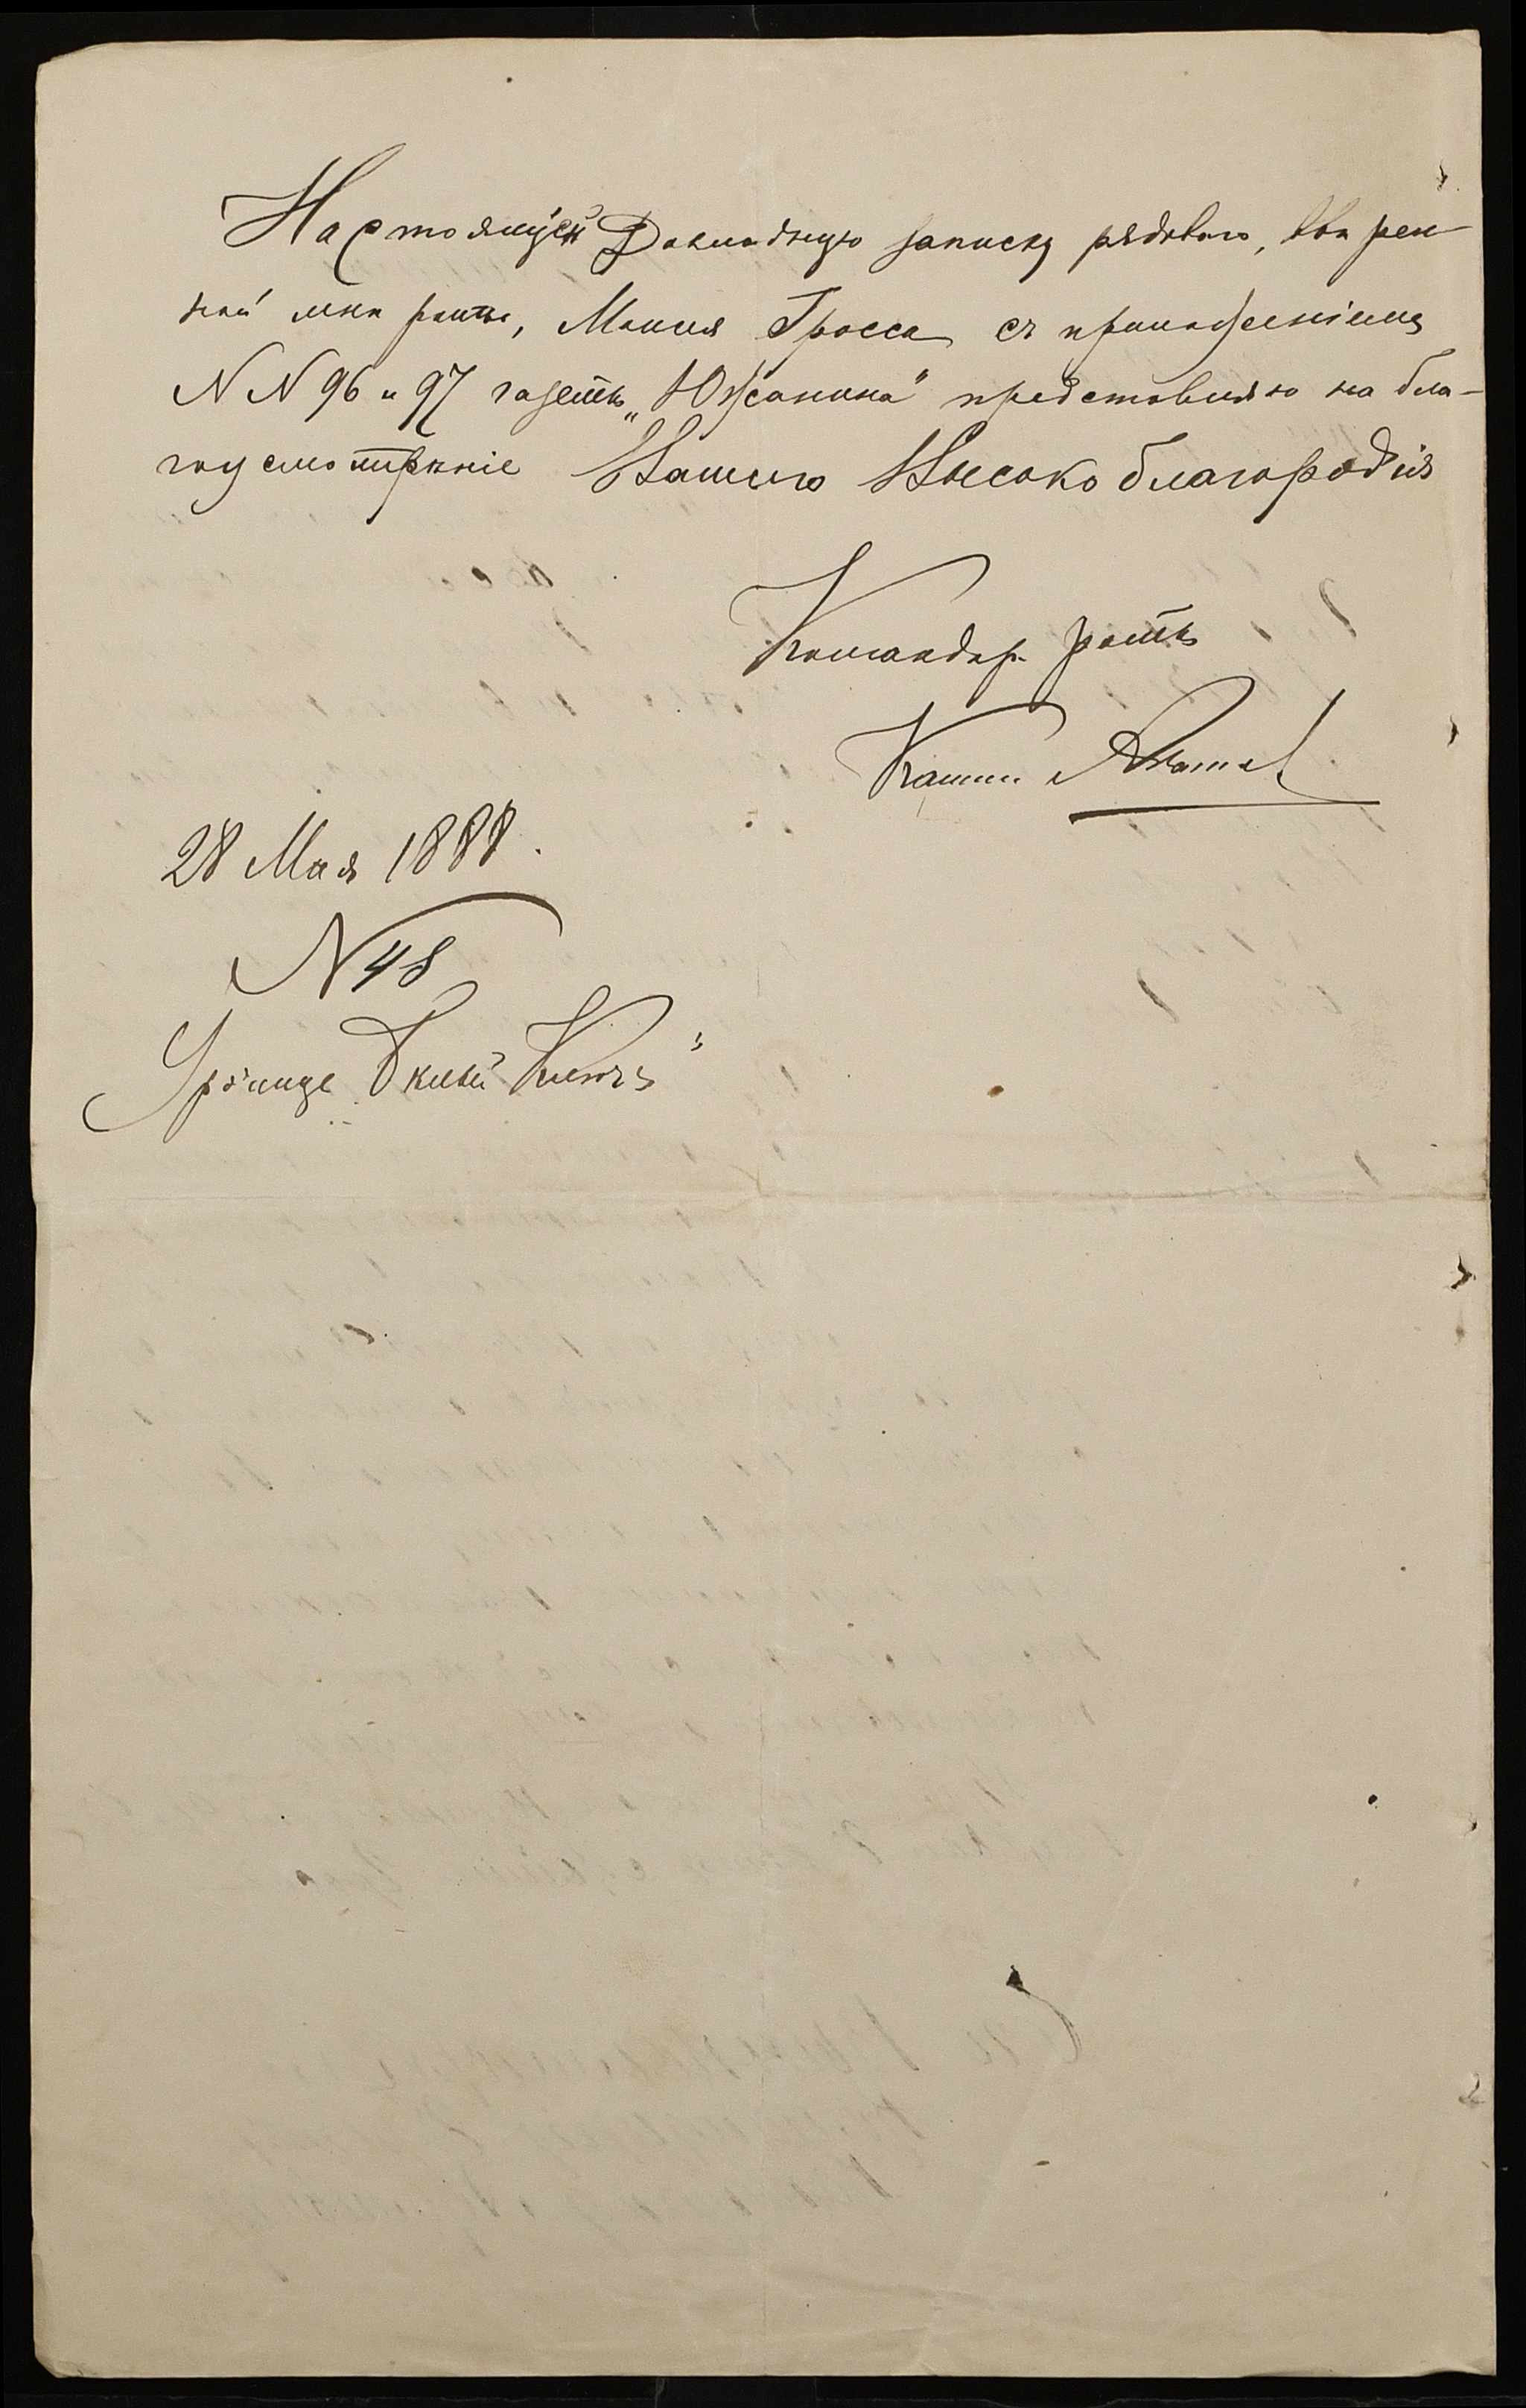 Настоящую Докладную записку рядового, ввѣрен-
ной мнѣ роты, Гросса съ приложеніемъ
NN 96 и 97 газеты „Южанина" представляю на бла-
гоусмотрѣніе Вашего Высокоблагородія
Командиръ роты
Капит.
28 Мая 1888.
N 48
Урочище Ключъ"